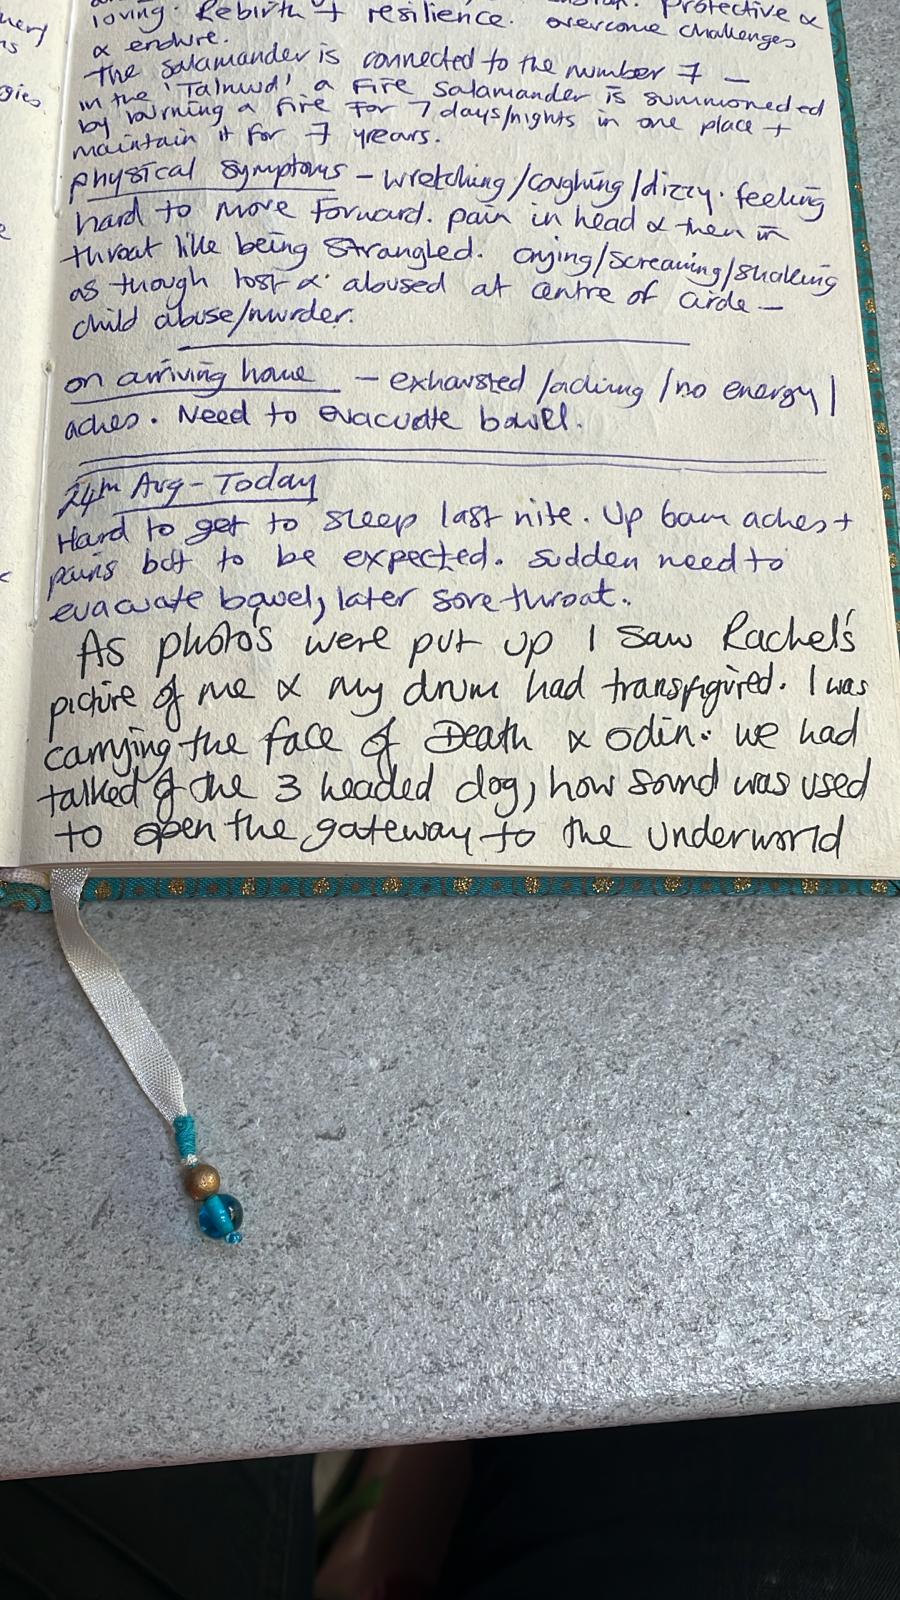 nery
ns
gies
loving. Rebirth + resilience. Protective &
overcome challenges
& endure.
The salamander is connected to the number 7 –
in the 'Talmud' a Fire Salamander is summoneded
by burning a fire for 7 days/nights in one place +
maintain it for 7 yrears.
physical symptoms – wretching/coughing/dizzy. feeling
hard to move forward. pain in head & then in
throat like being strangled. crying/screaming/shaking
as though lost & abused at centre of circle –
child abuse/murder.
on arriving home – exhausted /aching /no energy/
aches. Need to evacuate bowel.
24th Aug - Today
Hard to get to sleep last nite. Up 6am aches +
pains but to be expected. sudden need to
evacuate bowel, later sore throat.
As photo's were put up I saw Rachel's
picture of me & my drum had transfigured. I was
carrying the face of Death & Odin. we had
talked of the 3 headed dog, how sound was used
to open the gateway to the underworld